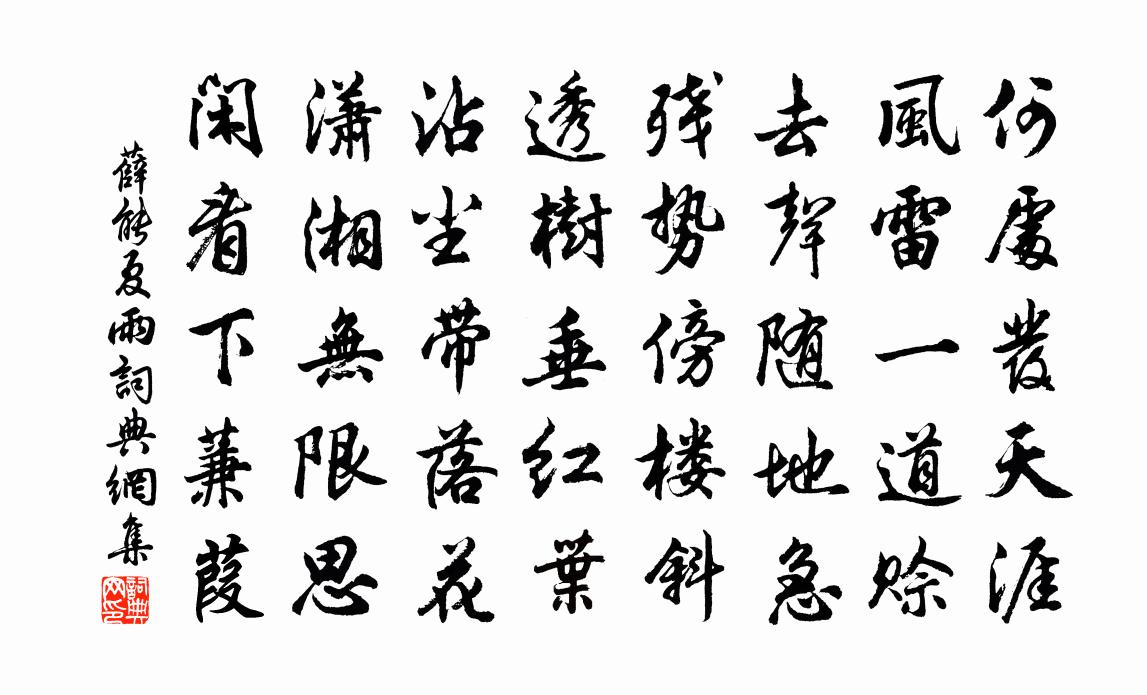 何處發天涯
風雷一道賒
去聲随地急
残势傍楼斜
透樹垂红葉
沾尘带落花
瀟湘無限思
闲看下蒹葭
薛能夏雨詞典網集
詞典网印